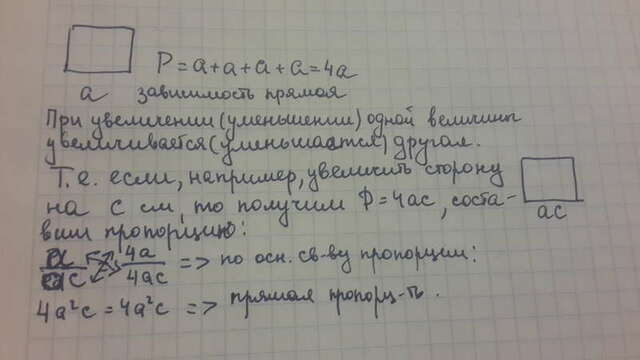 P = a + a + a + a = 4a
a зависимость прямая
При увеличении (уменьшении) одной величины
увеличивается (уменьшается) другая.
Т.е. если, например, увеличить сторону
на c см, то получим P = 4ac, соста-
ac
вим пропорцию:
a/ac = 4a/4ac => по осн. св-ву пропорции:
4a²c = 4a²c => прямая пропорц-ть.